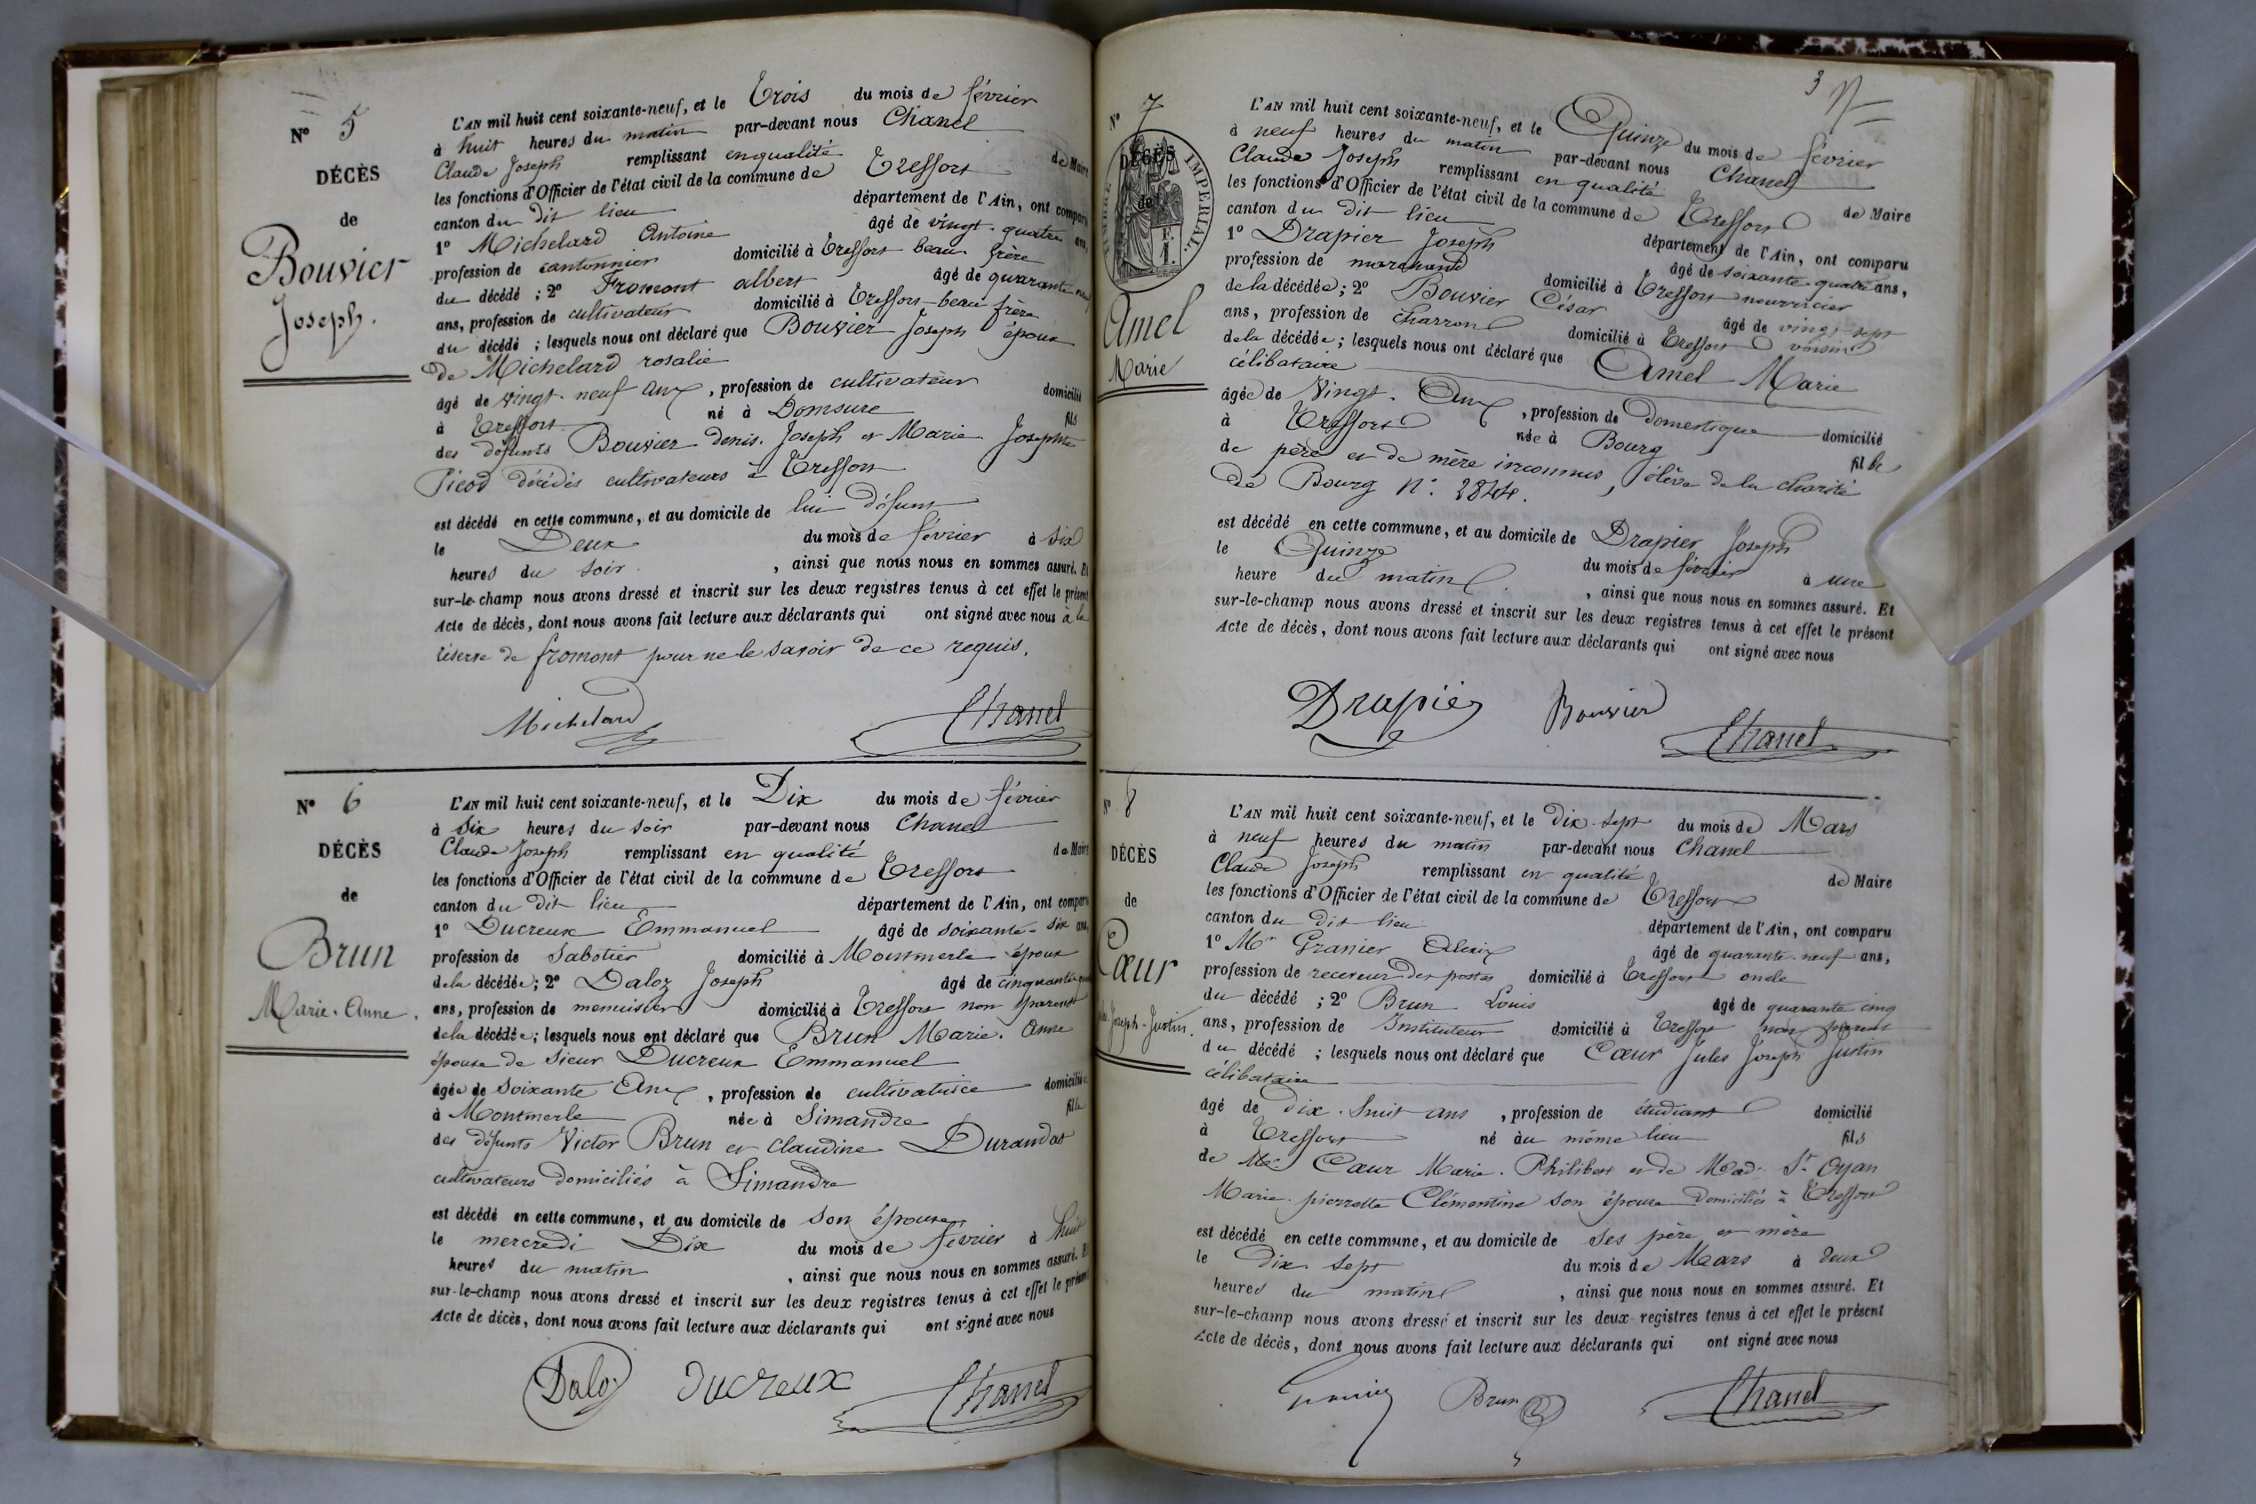 N° 5
DÉCÈS
de
Bouvier
Joseph.
L'AN mil huit cent soixante-neuf, et le Trois du mois de février
à huit heures du matin par-devant nous Chanel
Claude Joseph remplissant en qualité de Maire
les fonctions d'Officier de l'état civil de la commune de Treffort
canton du dit lieu département de l'Ain, ont comparu
1° Michelard Antoine âgé de vingt-quatre ans,
profession de cantonnier domicilié à Treffort beau-frère
du décédé ; 2° Fromont albert âgé de quarante
ans, profession de cultivateur domicilié à Treffort beau frère
du décédé ; lesquels nous ont déclaré que Bouvier Joseph époux
de Michelard rosalie
âgé de vingt-neuf ans, profession de cultivateur domicilié
à Treffort né à Domsure fils
des défunts Bouvier denis-Joseph et Marie Josephte
Picod décédés cultivateurs à Treffort
est décédé en cette commune, et au domicile de lui défunt
le Deux du mois de février à six
heures du soir, ainsi que nous nous en sommes assuré. Et
sur-le-champ nous avons dressé et inscrit sur les deux registres tenus à cet effet le présent
Acte de décès, dont nous avons fait lecture aux déclarants qui ont signé avec nous à la
réserve de fromont pour ne le savoir de ce requis.
Michelard Chanel
N° 6
DÉCÈS
de
Brun
Marie-Anne.
L'AN mil huit cent soixante-neuf, et le Dix du mois de février
à Six heures du soir par-devant nous Chanel
Claude Joseph remplissant en qualité de Maire
les fonctions d'Officier de l'état civil de la commune de Treffort
canton du dit lieu département de l'Ain, ont comparu
1° Ducreux Emmanuel âgé de soixante-six ans,
profession de Sabotier domicilié à Montmerle époux
de la décédée ; 2° Daloz Joseph âgé de cinquante
ans, profession de menuisier domicilié à Treffort non parent
de la décédée ; lesquels nous ont déclaré que Brun Marie-Anne
épouse de sieur Ducreux Emmanuel
âgée de soixante Ans, profession de cultivatrice domiciliée
à Montmerle née à Simandre fille
des défunts Victor Brun et Claudine Durandat
cultivateurs domiciliés à Simandre
est décédé en cette commune, et au domicile de son époux
le mercredi Dix du mois de février à huit
heures du matin, ainsi que nous nous en sommes assuré. Et
sur-le-champ nous avons dressé et inscrit sur les deux registres tenus à cet effet le présent
Acte de décès, dont nous avons fait lecture aux déclarants qui ont signé avec nous
Daloz Ducreux Chanel
3
N° 7
DÉCÈS
de
TIMBRE IMPÉRIAL.
F.
1.
Amel
Marie
L'AN mil huit cent soixante-neuf, et le Quinze du mois de février
à neuf heures du matin par-devant nous Chanel
Claude Joseph remplissant en qualité de Maire
les fonctions d'Officier de l'état civil de la commune de Treffort
canton du dit lieu département de l'Ain, ont comparu
1° Drapier Joseph âgé de soixante-quatre ans,
profession de marchand domicilié à Treffort nourricier
de la décédée ; 2° Bouvier César âgé de vingt-sept
ans, profession de charron domicilié à Treffort voisin
de la décédée ; lesquels nous ont déclaré que Amel Marie
célibataire
âgée de Vingt-Ans, profession de Domestique domicilié
à Treffort née à Bourg fille
de père et de mère inconnus, élève de la charité
de Bourg N°. 2844.
est décédé en cette commune, et au domicile de Drapier Joseph
le Quinze du mois de février à une
heure du matin, ainsi que nous nous en sommes assuré. Et
sur-le-champ nous avons dressé et inscrit sur les deux registres tenus à cet effet le présent
Acte de décès, dont nous avons fait lecture aux déclarants qui ont signé avec nous
Drapier Bouvier Chanel
N° 8
DÉCÈS
de
Cœur
Joseph-Justin.
L'AN mil huit cent soixante-neuf, et le dix-sept du mois de Mars
à neuf heures du matin par-devant nous Chanel
Claude Joseph remplissant en qualité de Maire
les fonctions d'Officier de l'état civil de la commune de Treffort
canton du dit lieu département de l'Ain, ont comparu
1° Mr Granier Alexis âgé de quarante-neuf ans,
profession de receveur des postes domicilié à Treffort oncle
du décédé ; 2° Brun Louis âgé de quarante cinq
ans, profession de Instituteur domicilié à Treffort non parent
du décédé ; lesquels nous ont déclaré que Cœur Jules Joseph Justin
célibataire
âgé de dix-huit ans, profession de étudiant domicilié
à Treffort né au même lieu fils
de Mr Cœur Marie-Philibert et de Made St Oyan
Marie-pierrette Clémentine son épouse Domiciliés à Treffort
est décédé en cette commune, et au domicile de ses père et mère
le Dix sept du mois de Mars à deux
heures du matin, ainsi que nous nous en sommes assuré. Et
sur-le-champ nous avons dressé et inscrit sur les deux registres tenus à cet effet le présent
Acte de décès, dont nous avons fait lecture aux déclarants qui ont signé avec nous
Brun Chanel